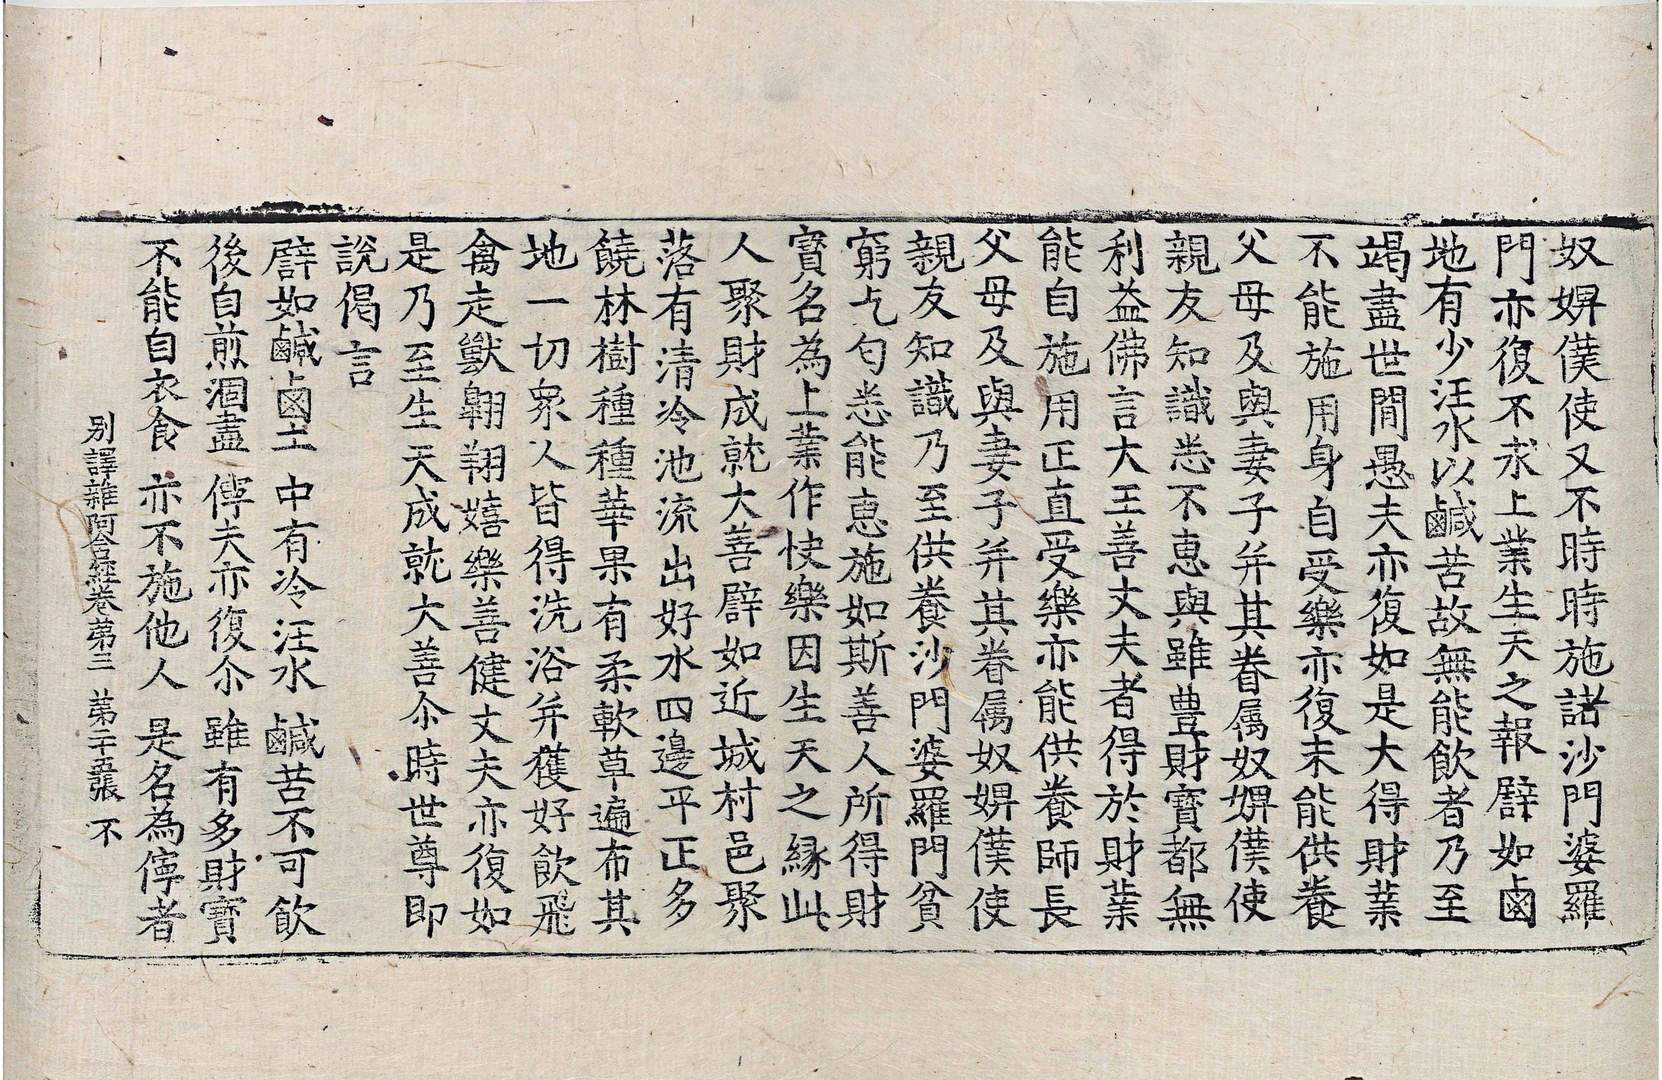 奴婢僕使又不時時施諸沙門婆羅
門亦復不求上業生天之報譬如鹵
地有少汪水以鹹苦故無能飲者乃至
竭盡世間愚夫亦復如是大得財業
不能施用身自受樂亦復未能供養
父母及與妻子并其眷属奴婢僕使
親友知識悉不恵與雖豊財寶都無
利益佛言大王善丈夫者得於財業
能自施用正直受樂亦能供養師長
父母及與妻子并其眷属奴婢僕使
親友知識乃至供養沙門婆羅門貧
窮乞匂悉能恵施如斯善人所得財
寳名為上業作快樂因生天之縁此
人聚財成就大善譬如近城村邑聚
落有清冷池流出好水四邊平正多
饒林樹種種華果有柔軟草遍布其
地一切衆人皆得洗浴并獲好飲飛
禽走獸翺翔嬉樂善健丈夫亦復如
是乃至生天成就大善尒時世尊即
說偈言
譬如鹹鹵土 中有冷汪水 鹹苦不可飲
後自煎涸盡 儜夫亦復尒 雖有多財寶
不能自衣食 亦不施他人 是名為儜者
別譯雜阿含経卷苐三 苐二十五張 不